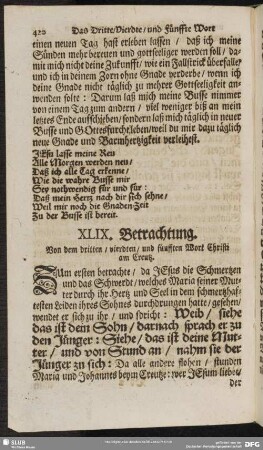 422 Das Dritte/Vierdte/ und Fünffte Wort
einen neuen Tag hast erleben lassen/ daß ich meine
Sünden mehr bereuen und gottseeliger werden soll/ da-
mit mich nicht deine Zukunfft/ wie ein Fallstrick überfalle/
und ich in deinem Zorn ohne Gnade verderbe/ wenn ich
deine Gnade nicht täglich zu mehrer Gottseeligkeit an-
wenden solte: Darum laß mich meine Busse nimmer
von einem Tag zum andern / viel weniger biß an mein
letztes Ende aufschieben/ sondern laß mich täglich in neuer
Busse und GOttesfurcht leben/ weil du mir dazu täglich
neue Gnade und Barmhertzigkeit verleihest.
JEsu lasse meine Reu
Alle Morgen werden neu/
Daß ich alle Tag erkenne/
Wie die wahre Busse mir
Sey nothwendig für und für:
Daß mein Hertz nach dir sich sehne/
Weil mir noch die Gnaden-Zeit
Zu der Busse ist bereit.
XLIX. Betrachtung.
Von dem dritten / vierdten/ und fünfften Wort Christi
am Creutz.
ZUm ersten betrachte / da JEsus die Schmertzen
und das Schwerdt/ welches Maria seiner Mut-
ter durch ihr Hertz und Seel in dem schmertzhaff-
testen Leiden ihres Sohnes durchdrungen hatte/ gesehen/
wendet er sich zu ihr / und spricht: Weib/ siehe
das ist dein Sohn/ darnach sprach er zu
den Jünger: Siehe/ das ist deine Mut-
ter/ und von Stund an/ nahm sie der
Jünger zu sich: Da alle andere flohen / stunden
Maria und Johannes beym Creutze: wer JEsum liebet/
der
SLUB